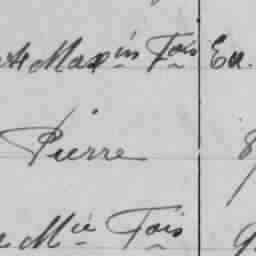 Maxin Fois Eu.
Pierre 8
Mie Fois 9